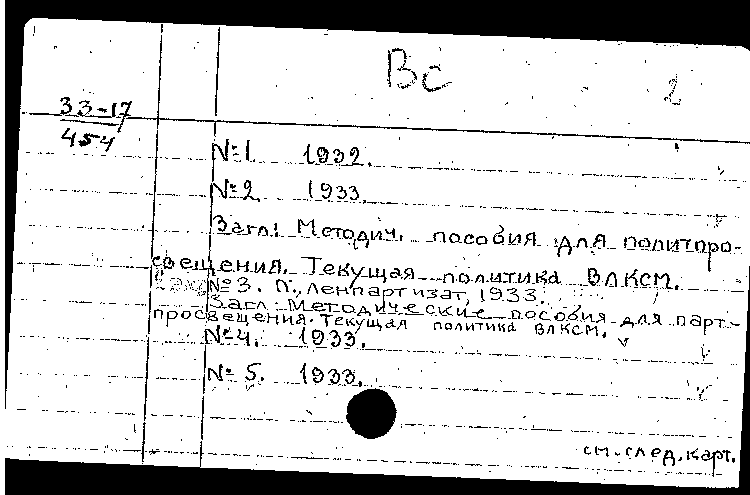 Вс
2
33-17
454
№1 1932.
№2 1933.
Загл: Методич. пособия для политпро-
свещения. Текущая политика ВЛКСМ.
№3. Л., Ленпартиздат, 1933.
Загл: Методические пособия для парт-
просвещения. Текущая политика ВЛКСМ.
№4. 1933.
№5. 1933.
см. след. карт.